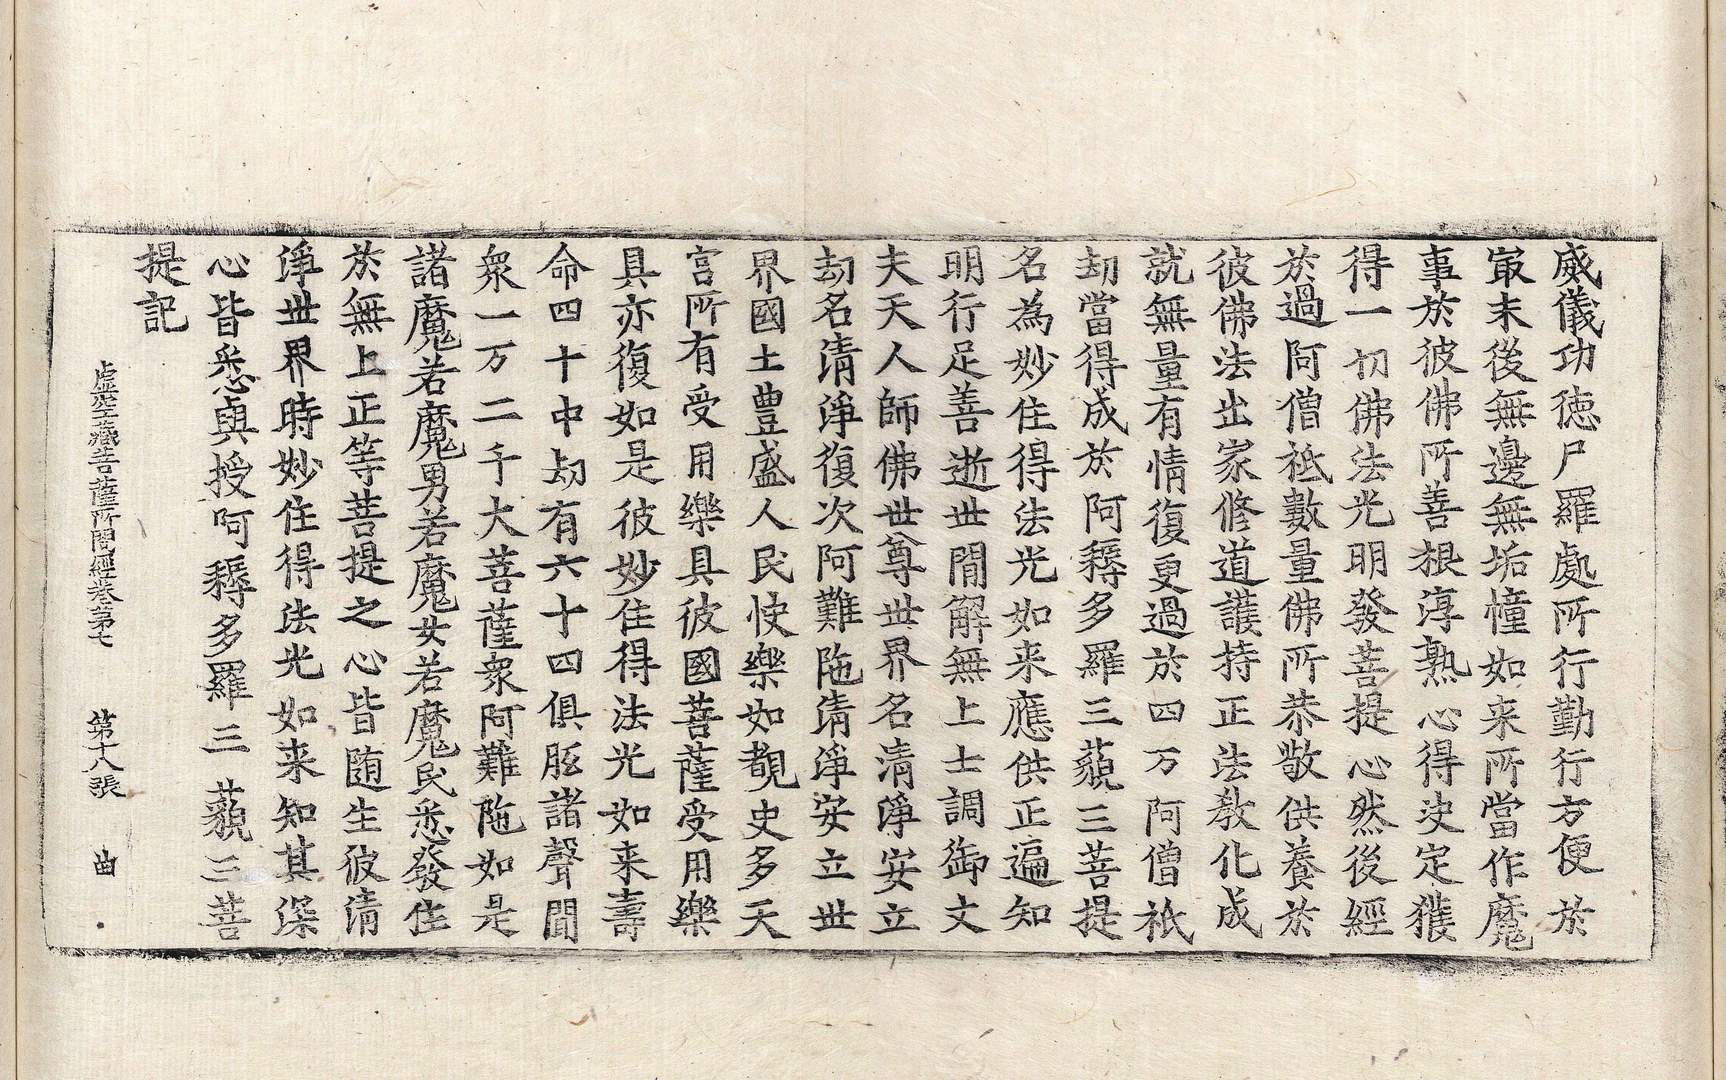 威儀功徳尸羅處所行勤行方便於
㝡末後無邊無垢憧如来所當作魔
事於彼佛所善根淳熟心得決定獲
得一切佛法光明發菩提心然後經
於過阿僧祇數量佛所恭敬供養於
彼佛法出家修道護持正法教化成
就無量有情復更過於四万阿僧祇
劫當得成於阿耨多羅三藐三菩提
名為妙住得法光如来應供正遍知
明行足善逝世間解無上士調御丈
夫天人師佛世尊世界名清淨安立
劫名清淨復次阿難陁清淨安立世
界國土豊盛人民快樂如覩史多天
宮所有受用樂具彼國菩薩受用樂
具亦復如是彼妙住得法光如来壽
命四十中劫有六十四俱胝諸聲聞
衆一万二千大菩薩衆阿難陁如是
諸魔若魔男若魔女若魔民悉發住
於無上正等菩提之心皆随生彼清
淨世界時妙住得法光如来知其深
心皆悉與授阿耨多羅三藐三菩
提記
虛空藏菩薩所問經卷第七　第十八張　曲